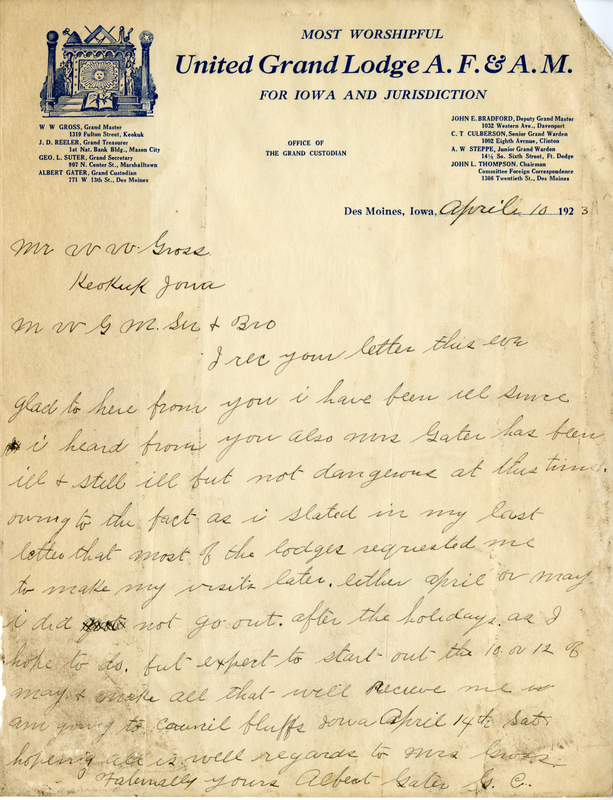 MOST WORSHIPFUL
United Grand Lodge A. F. & A. M.
FOR IOWA AND JURISDICTION
W W GROSS, Grand Master
1319 Fulton Street, Keokuk
J. D. REELER, Grand Treasurer
1st Nat. Bank Bldg., Mason City
GEO. L. SUTER, Grand Secretary
907 N. Center St., Marshalltown
ALBERT GATER, Grand Custodian
771 W 13th St., Des Moines
OFFICE OF
THE GRAND CUSTODIAN
JOHN E. BRADFORD, Deputy Grand Master
1032 Western Ave., Davenport
C. T. CULBERSON, Senior Grand Warden
1002 Eighth Avenue, Clinton
A. W. STEPPE, Junior Grand Warden
14½ So. Sixth Street, Ft. Dodge
JOHN L. THOMPSON, Chairman
Committee Foreign Correspondence
1306 Twentieth St., Des Moines
Des Moines, Iowa, April 10 1923
Mr W W Gross.
Keokuk Iowa
M W G M. Sir & Bro
I rec your letter this eve
glad to here from you i have been ill since
i heard from you also mrs Gater has been
ill & still ill but not dangerous at this time.
owing to the fact as i stated in my last
letter that most of the lodges requested me
to make my visits later. either april or may
i did not go out. after the holidays. as I
hope to do. but expect to start out the 10 or 12 of
may & make all that will recieve me
am going to council bluffs Iowa April 14th Sat.
hopeing all is well regards to Mrs Gross.
Fraternally yours Albert Gater G. C.